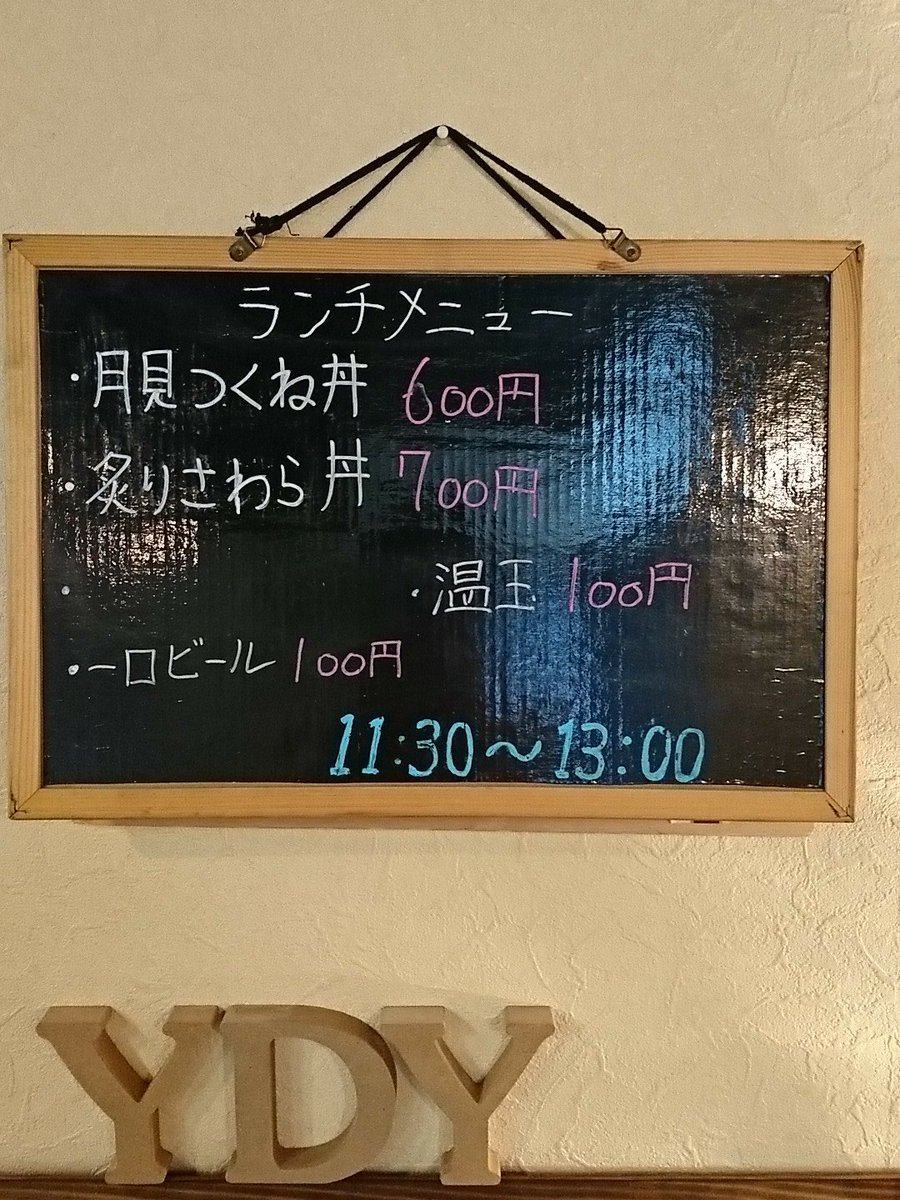 ランチメニュー
・月見つくね丼 600円
・炙りさわら丼 700円
・温玉 100円
・一口ビール 100円
11:30〜13:00
YDY